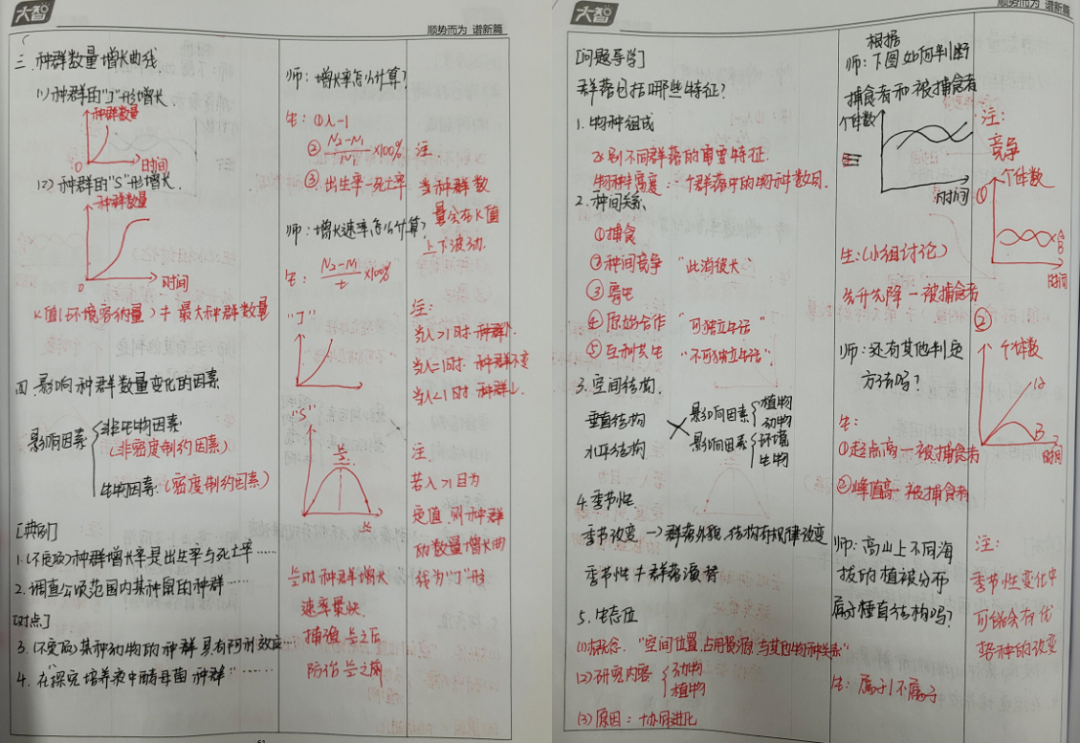 大智
顺势而为 谱新篇
三. 种群数量增长曲线
(1)种群的"J"形增长
种群数量
0
时间
(2)种群的"S"形增长.
种群数量
0
时间
K值(环境容纳量) ≠ 最大种群数量
四.影响种群数量变化的因素
影响因素
非生物因素
(非密度制约因素)
生物因素:(密度制约因素)
[典例]
1.(不良场)种群增长率是出生率与死亡率……
2.调查公顷范围内某种鼠的种群……
[对点]
3.(不变场)某种动物的种群具有阿利效应…
4.在探究培养液中酵母菌种群……
师:增长率怎么计算?
生:①λ-1
②N₂-N₁/N₁×100%
③.出生率-死亡率
师:增长速率怎么计算?
生:N₂-N₁/t×100%
"J"
"S"
K/2
K
K/2时种群增长
速率最快.
捕渔 K/2之后
防治 K/2之前
注
当种群数
量会在K值
上下波动.
注:
当λ>1时.种群↑.
当λ=1时.种群不变
当λ<1时.种群↓.
注.
若λ>1且为
定值,则种群
的数量增长曲
线为"J"形
大智
顺势而为 谱新篇
[问题导学]
群落包括哪些特征?
1.物种组成
区别不同群落的重要特征.
物种丰富度:一个群落中的物种数目.
2.种间关系.
①捕食
②种间竞争 "此消彼长"
③寄生
④原始合作 "可独立生活"
⑤互利共生 "不可独立生活".
3.空间结构.
垂直结构
水平结构
影响因素
植物
动物
影响因素
环境
生物
4.季节性.
季节改变→群落外貌.结构有规律改变
季节性≠群落演替
5.生态位
(1)概念."空间位置,占用资源,与其他物种关系"
(2)研究内容
动物
植物
(3)原因:协同进化
根据
师:下图如何判断
捕食者和被捕食者
个体数
时间
生:(小组讨论)
先升先降—被捕食者
师:还有其他判定
方法吗?
生:
①起点高—被捕食者
②峰值高—被捕食者
师:高山上不同海
拔的植被分布
属于垂直结构吗?
生:属于/不属于
注:
竞争
①
个体数
A
B
时间
②
个体数
A
B
时间
注:
季节性变化中
可能会有优
势种的改变
51